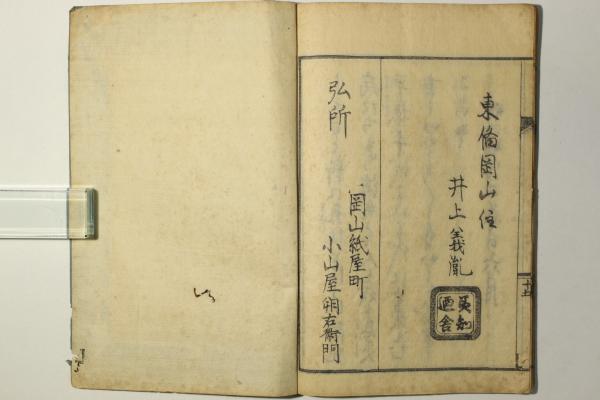 東備岡山住
井上義胤
弘所
岡山紙屋町
小山屋卯右衛門
十五